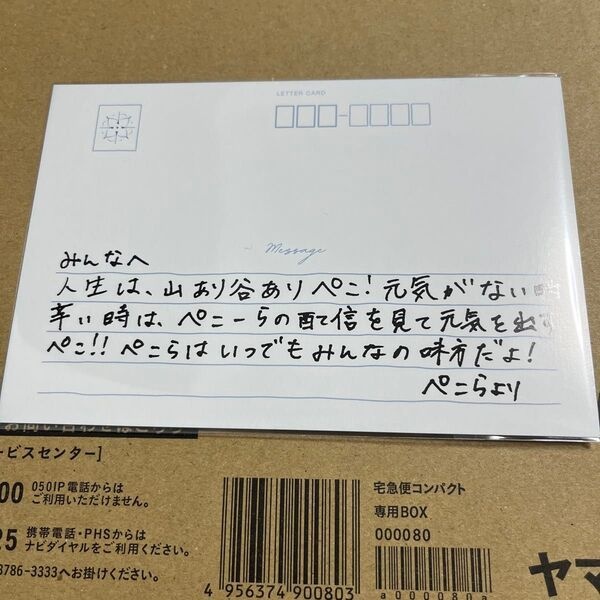 LETTER CARD
Message
みんなへ
人生は、山あり谷ありぺこ!元気がない時
辛い時は、ぺこーらの配信を見て元気を出す
ぺこ!!ぺこらはいつでもみんなの味方だよ!
ぺこらより
ービスセンター]
00 050IP電話からは
ご利用いただけません。
25 携帯電話・PHSからは
ナビダイヤルをご利用ください。
3786-3333へお掛けください。
4 956374 900803
宅急便コンパクト
専用BOX
000080
a000080a
ヤマ